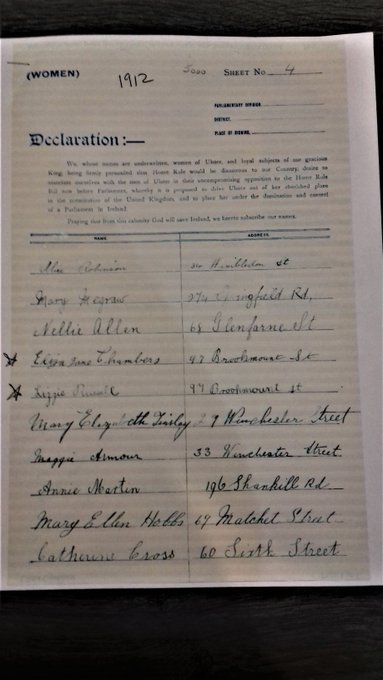 (WOMEN)
1912
5000 SHEET No. 4
PARLIAMENTARY DIVISION
DISTRICT
PLACE OF SIGNING
Declaration:—
We, whose names are underwritten, women of Ulster, and loyal subjects of our gracious
King, being firmly persuaded that Home Rule would be disastrous to our Country, desire to
associate ourselves with the men of Ulster in their uncompromising opposition to the Home Rule
Bill now before Parliament, whereby it is proposed to drive Ulster out of her cherished place
in the constitution of the United Kingdom, and to place her under the domination and control
of a Parliament in Ireland.
Praying that from this calamity God will save Ireland, we hereto subscribe our names.
NAME. ADDRESS.
Robinson 34 Wimbledon St
Mary Megraw Rd,
Nellie Allen 68 Glenfarne St
Eliza Jane Chambers 97 Brookmount St
Lizzie 97 Brookmount st
Mary Elizabeth Tinsley 29 Winchester Street
Maggie Armour 33 Winchester Street.
Annie Martin 196 Shankill Rd
Mary Ellen Hobbs 69 Matchet Street
Catherine Cross 60 Sixth Street